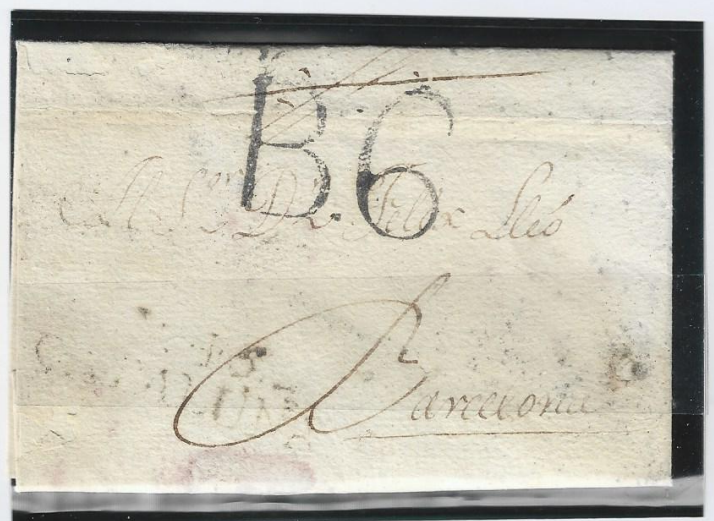 B.6
Al S.or D.n Felix Lleó
Barcelona